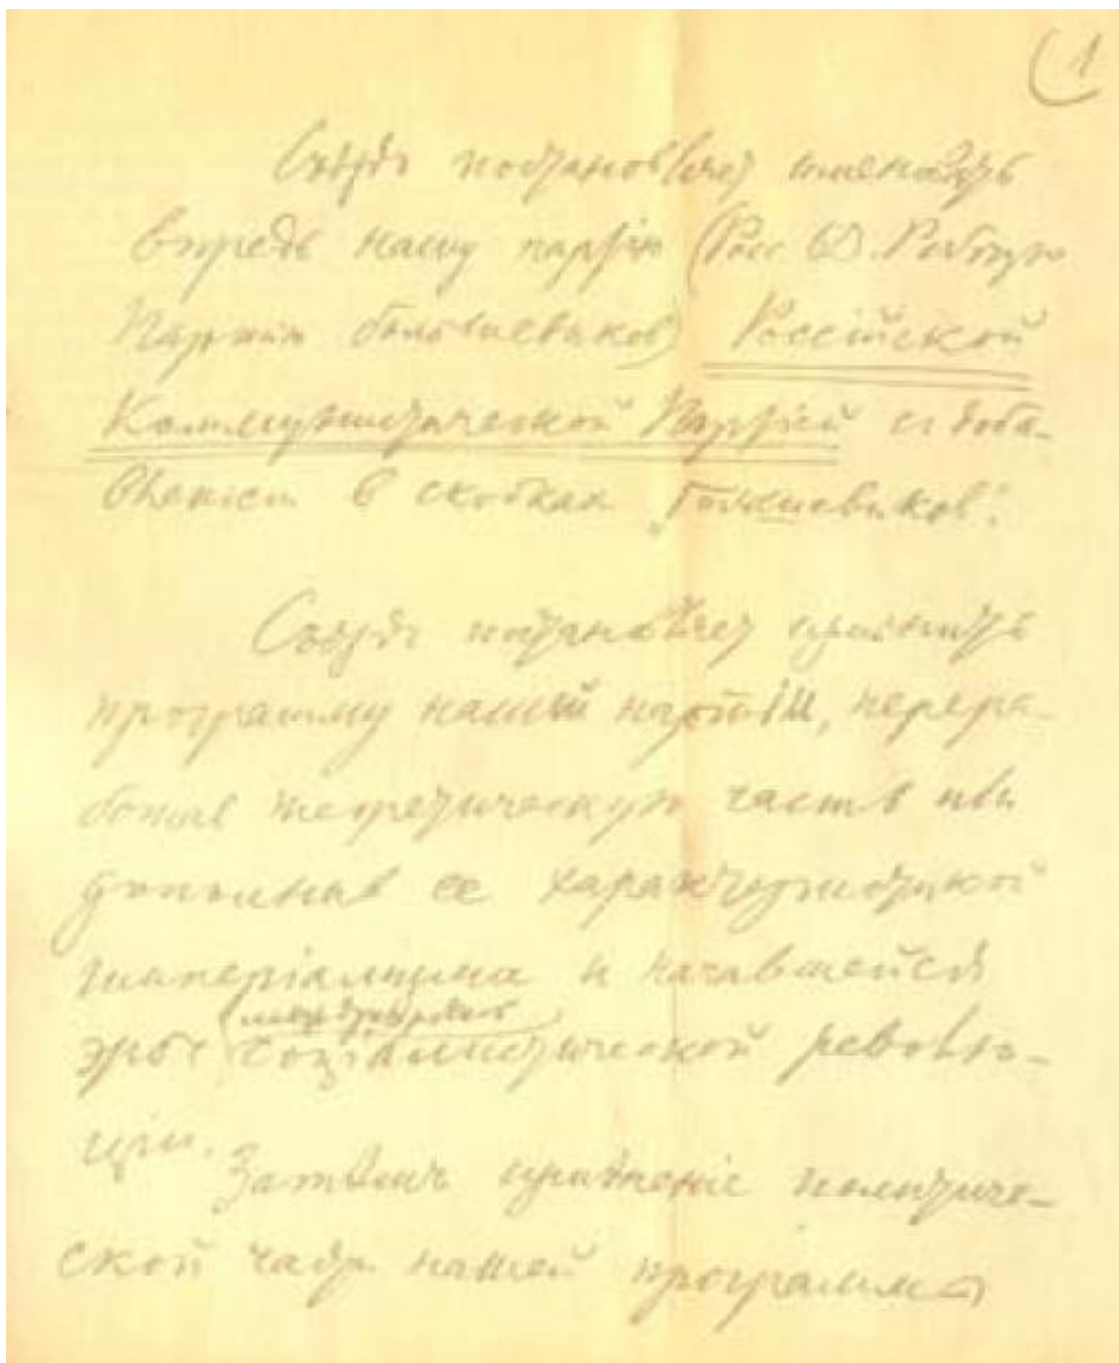 1
Съезд постановляет именовать
впредь нашу партию (Росс. С.-Д. Рабочую
Партию большевиков) Российской
Коммунистической Партией с доба-
влением в скобках „большевиков".
Съезд постановляет изменить
программу нашей партіи, перера-
ботав теоретическую часть или
дополнив ее характеристикой
имперіализма и начавшейся
международной
эры соціалистической револю-
ціи.
Затем измененіе политиче-
ской части нашей программы